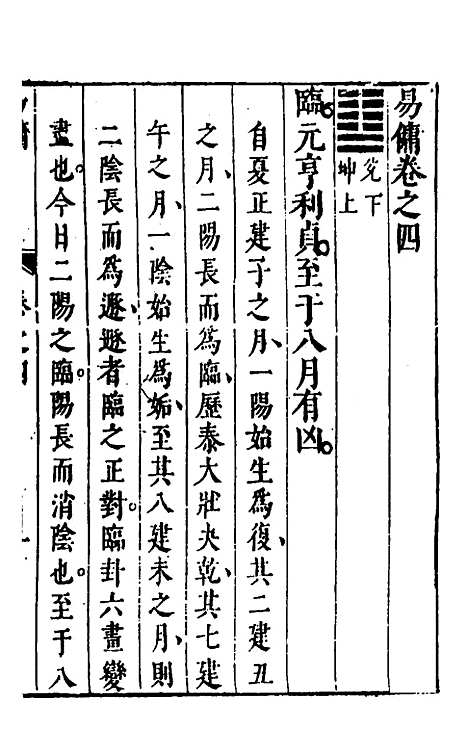 易傭卷之四
兌下
坤上
臨。元亨利貞。至于八月有凶。
自夏正建子之月、一陽始生爲復、其二建丑
之月、二陽長而爲臨、歷泰大壯夬乾、其七建
午之月、一陰始生爲姤、至其八建未之月、則
二陰長而爲遯、遯者臨之正對。臨卦六畫變
盡也。今日二陽之臨。陽長而消陰也。至于八